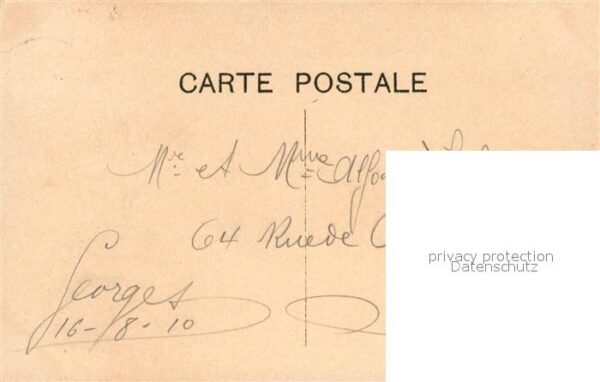 CARTE POSTALE
Mr et Mme
64 Rue de
Georges
16-8-10
privacy protection
Datenschutz